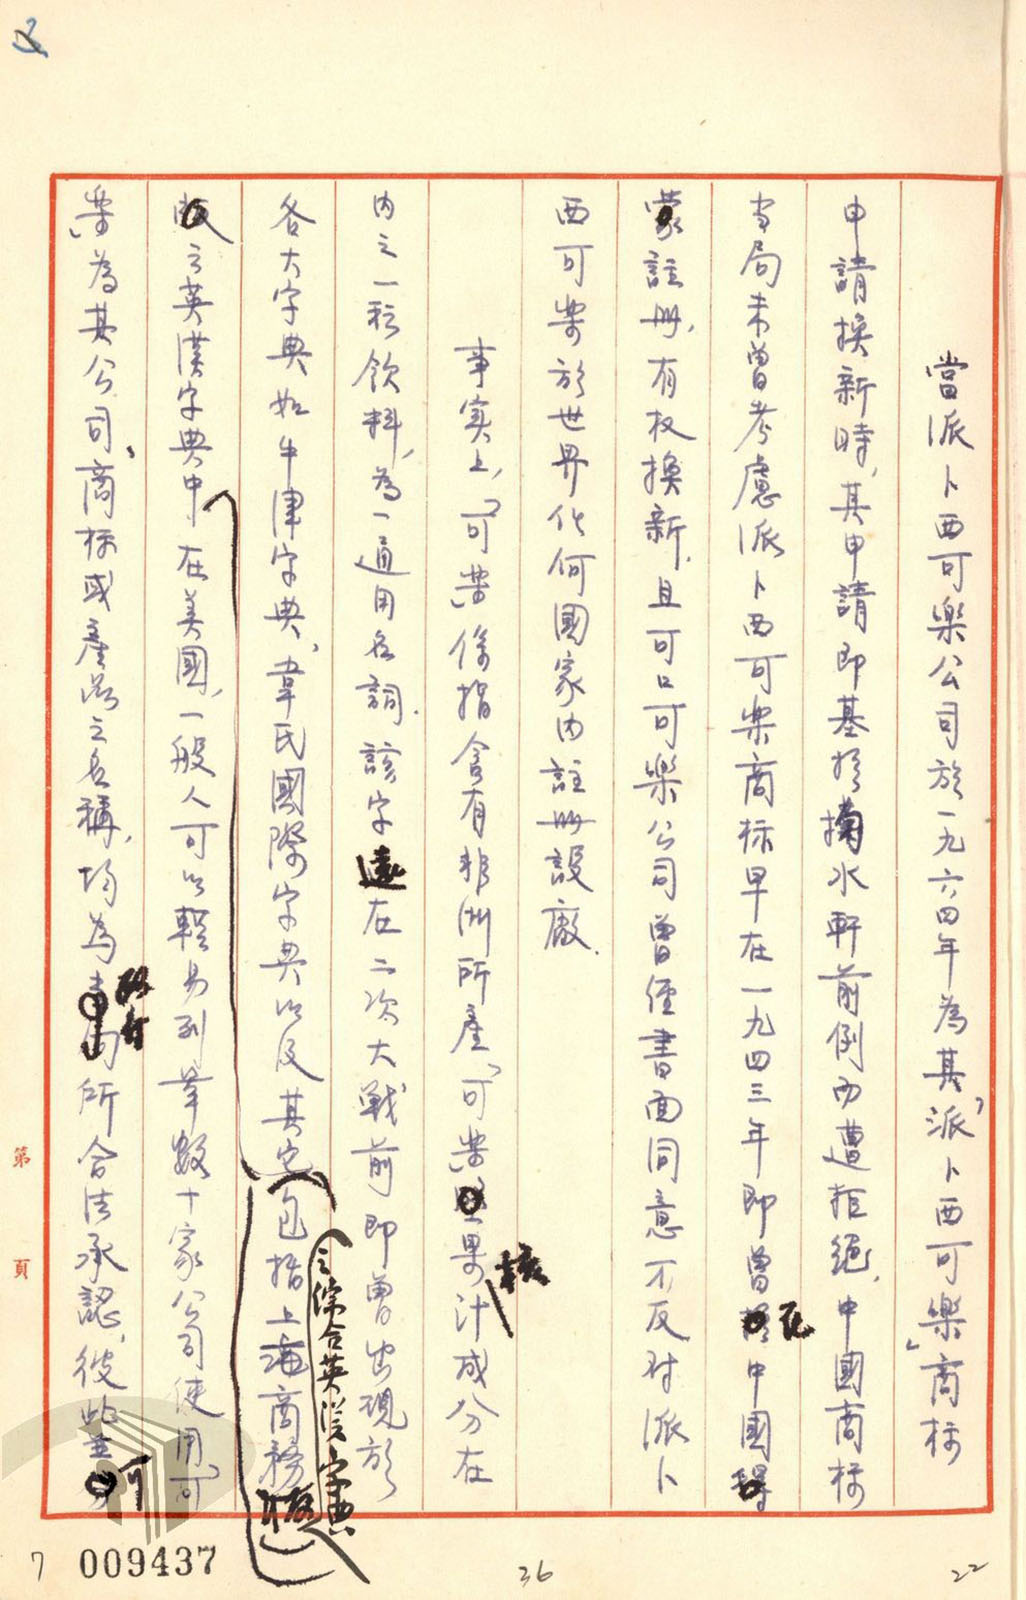 當派卜西可樂公司於一九六四年為其「派卜西可樂」商标
申請換新時，其申請即基於掬水軒前例而遭拒絕，中國商标
当局未曾考慮派卜西可樂商标早在一九四三年即曾在中國
蒙註册，有权換新，且可口可樂公司曾經書面同意不反対派卜
西可樂於世界任何國家內註册設廠．
事实上，「可樂」係指含有非洲所產「可樂」果核汁成分在
內之一種飲料，為一通用名詞．該字遠在二次大戰前即曾出現於
各大字典如牛津字典、韋氏國際字典以及其它包括上海商務
版之綜合英漢字典
版之英漢字典中 在美國，一般人可以輕易列舉數十家公司使用「可
樂」為其公司、商标或產品之名稱，均為政府所合法承認，彼此並
可
第 頁
7 009437
36
22